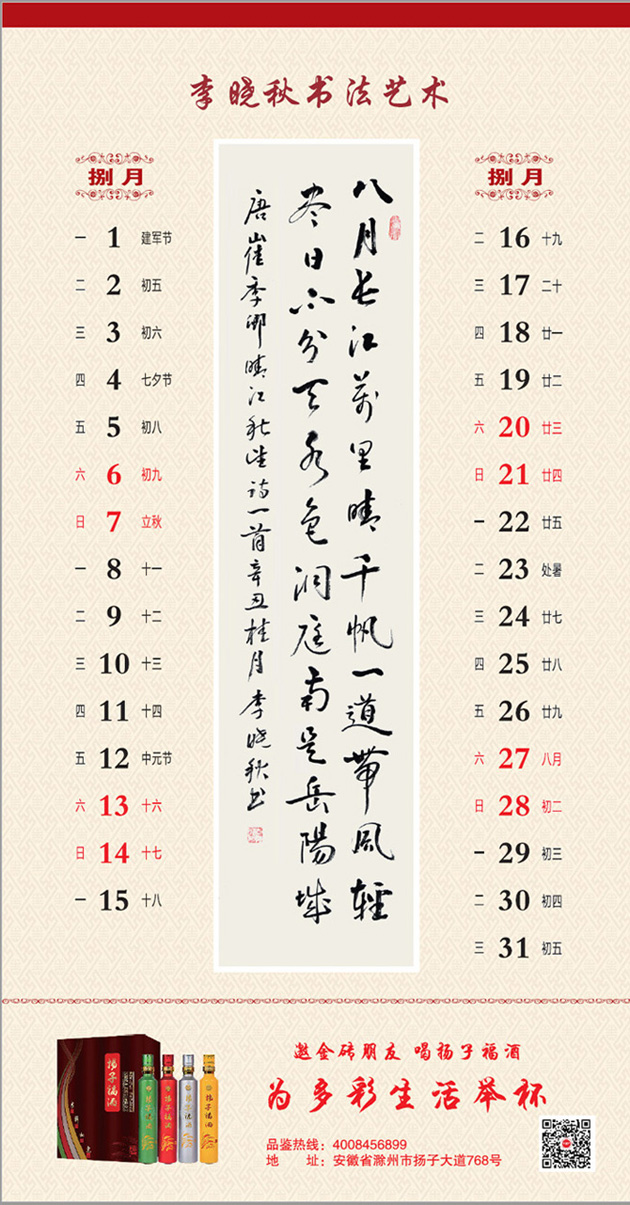 李晓秋书法艺术
捌月
一 1 建军节
二 2 初五
三 3 初六
四 4 七夕节
五 5 初八
六 6 初九
日 7 立秋
一 8 十一
二 9 十二
三 10 十三
四 11 十四
五 12 中元节
六 13 十六
日 14 十七
一 15 十八
八月长江萬里晴千帆一道帶風輕
尽日不分天水色洞庭南是岳陽城
唐崔季卿晴江秋望诗一首辛丑桂月李晓秋书
捌月
二 16 十九
三 17 二十
四 18 廿一
五 19 廿二
六 20 廿三
日 21 廿四
一 22 廿五
二 23 处暑
三 24 廿七
四 25 廿八
五 26 廿九
六 27 八月
日 28 初二
一 29 初三
二 30 初四
三 31 初五
扬子福酒
邀金砖朋友 喝扬子福酒
为多彩生活举杯
品鉴热线：4008456899
地 址：安徽省滁州市扬子大道768号